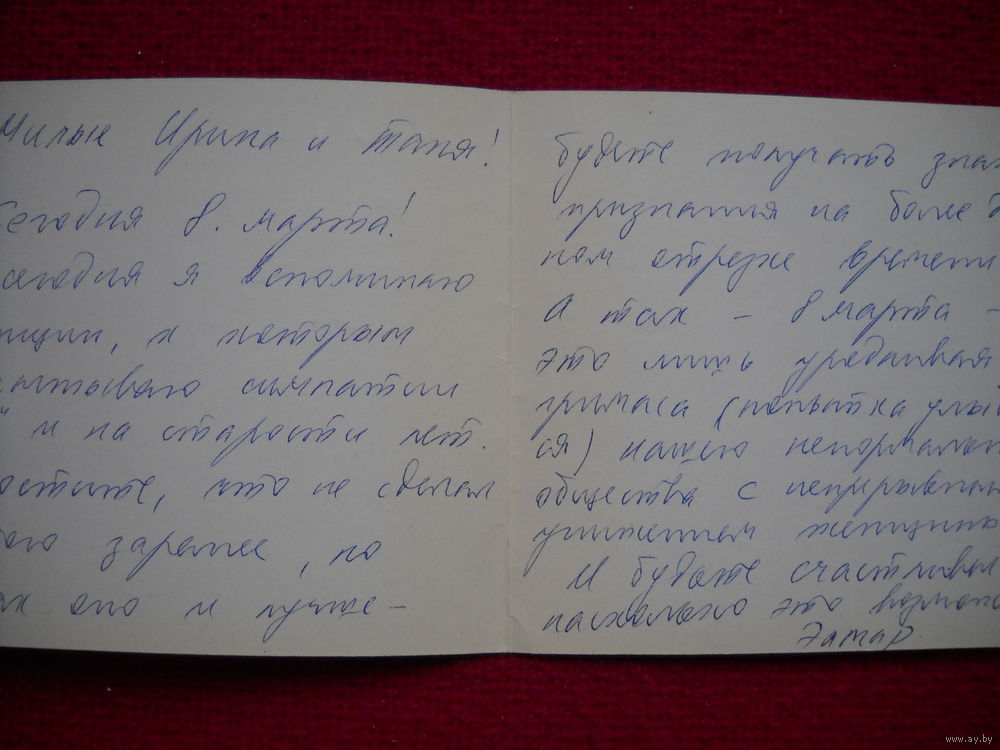 Милые Ирина и Таня!
Сегодня 8. марта!
сегодня я вспоминаю
нщин, к которым
пытываю симпатии
и на старости лет.
остите, что не сделал
ого заранее, но
ак оно и лучше-
будете получать знак
признания на более д
ном отрезке времени
А так - 8 марта -
это лишь уродливая
гримаса (попытка улыб
ся) нашего ненормальн
общества с непрерывным
унижением женщины
И будьте счастливы
насколько это возможн
www.ay.by